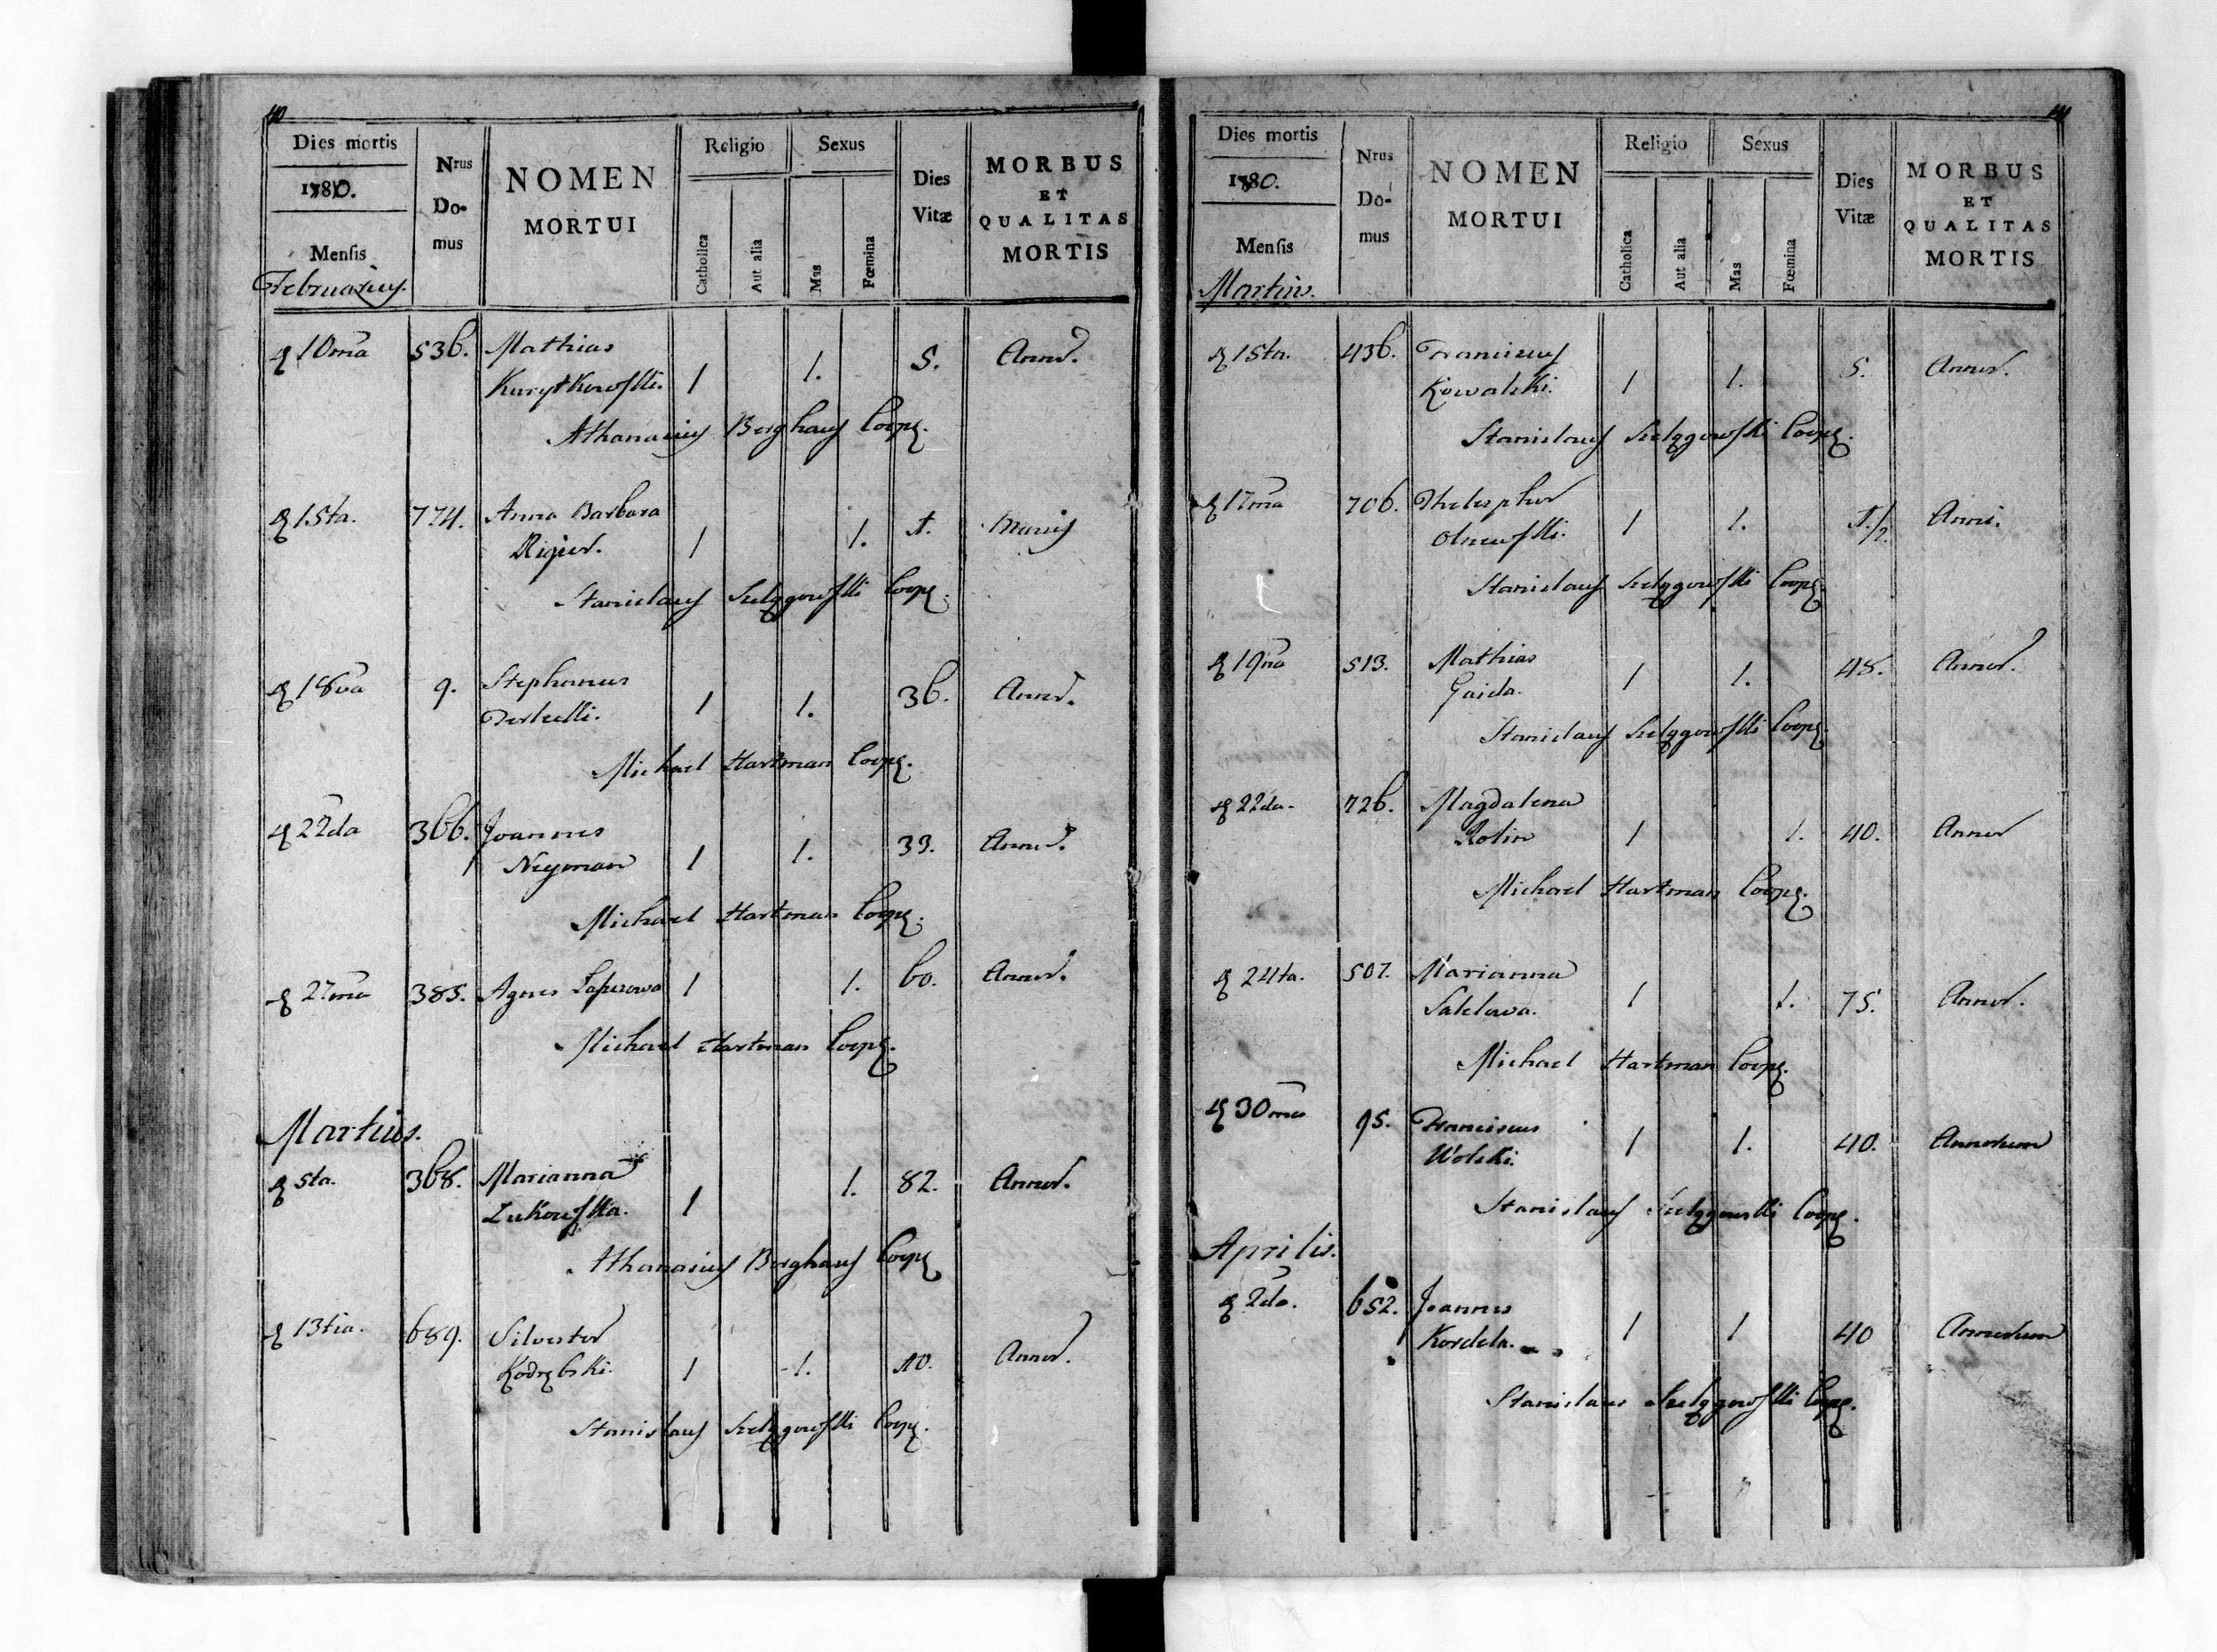 40
Dies mortis
1780.
Mensis
Februarius.
Nrus
Do-
mus
NOMEN
MORTUI
Religio
Catholica
Aut alia
Sexus
Mas
Fœmina
Dies
Vitæ
MORBUS
ET
QUALITAS
MORTIS
10ma 536. Mathias 5. Annor.
1 1.
Athanasius Berghaus Coop.
15ta. 774. Anna Barbara
Rigier. 1 1. 1.
Stanislaus Coop.
18va 9. Stephanus 36. Annor.
1 1.
Michael Hartman Coop.
22da 366. Joannes 33. Annor.
Neyman 1 1.
Michael Hartman Coop.
27ma 385. Agnes 1 1. 60. Annor.
Michael Hartman Coop.
Martius.
5ta. 368. Marianna 1. 82. Annor.
Zukowska. 1
Athanasius Berghaus Coop.
13tia. 689. Silvester
Kodrębski. 1 1. 10. Annor.
Stanislaus Coop.
41
Dies mortis
1780.
Mensis
Martius.
Nrus
Do-
mus
NOMEN
MORTUI
Religio
Catholica
Aut alia
Sexus
Mas
Fœmina
Dies
Vitæ
MORBUS
ET
QUALITAS
MORTIS
15ta. 436. Franciscus
Kowalski. 1 1. 5. Annor.
Stanislaus Coop.
17ma 706. Thelesphor
1 1. 1/2. Anni.
Stanislaus Coop.
19na 513. Mathias 48. Annor.
Gaida. 1 1.
Stanislaus Coop.
22da. 726. Magdalena
Rolin 1 1. 40. Annor
Michael Hartman Coop.
24ta. 507. Marianna
1 1. 75. Annor.
Michael Hartman Coop.
30ma 95. Franciscus
Wolski. 1 1. 40. Annorum
Stanislaus Coop.
Aprilis.
2da. 652. Joannes
Kordela. 1 1 40 Annorum
Stanislaus Coop.